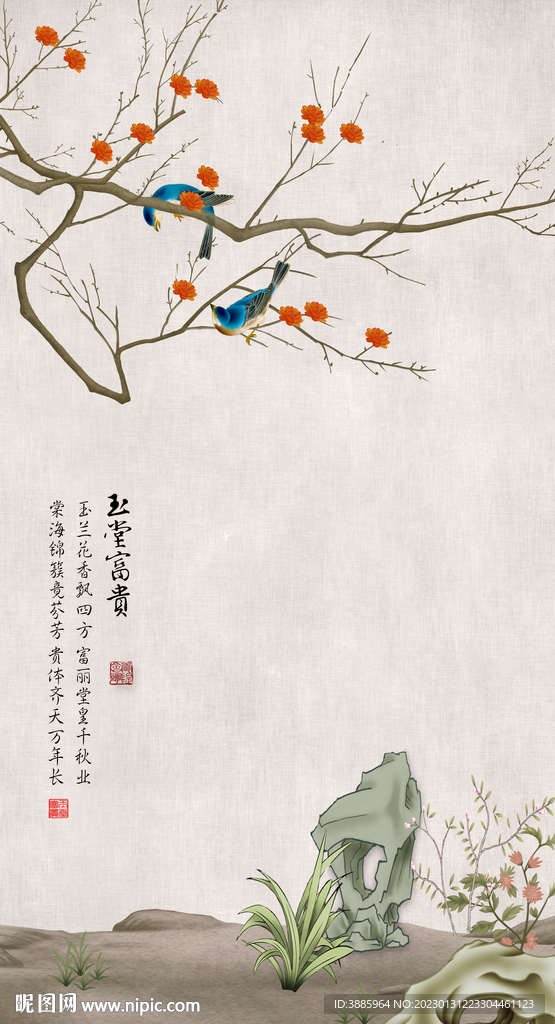 玉堂富貴
玉兰花香飘四方 富丽堂皇千秋业
棠海锦簇竟芬芳 贵体齐天万年长
昵图网 www.nipic.com
ID:3885964 NO:20230131223304461123